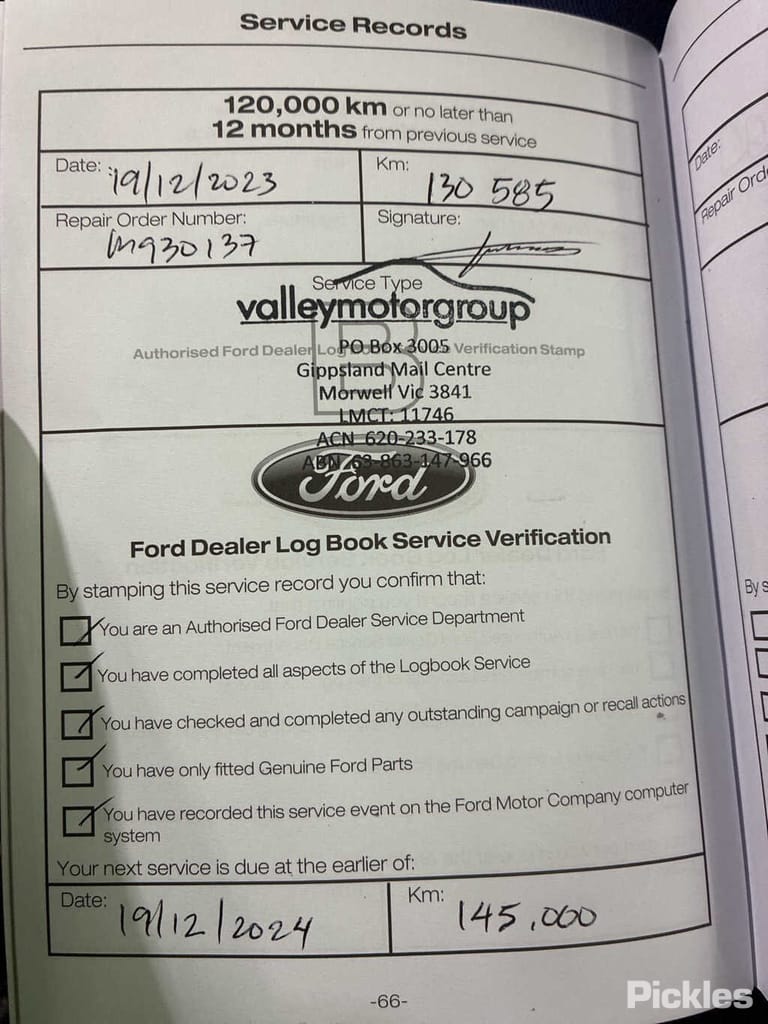 Service Records
120,000 km or no later than
12 months from previous service
Date: 19/12/2023
Km: 130 585
Repair Order Number:
M930137
Signature:
Service Type
valleymotorgroup
B
Authorised Ford Dealer Verification Stamp
PO Box 3005
Gippsland Mail Centre
Morwell Vic 3841
LMCT: 11746
ACN 620-233-178
ABN 63-863-147-966
Ford
Ford Dealer Log Book Service Verification
By stamping this service record you confirm that:
You are an Authorised Ford Dealer Service Department
You have completed all aspects of the Logbook Service
You have checked and completed any outstanding campaign or recall actions
You have only fitted Genuine Ford Parts
You have recorded this service event on the Ford Motor Company computer
system
Your next service is due at the earlier of:
Date: 19/12/2024
Km: 145,000
-66-
Date:
Repair Ord
By s
Pickles